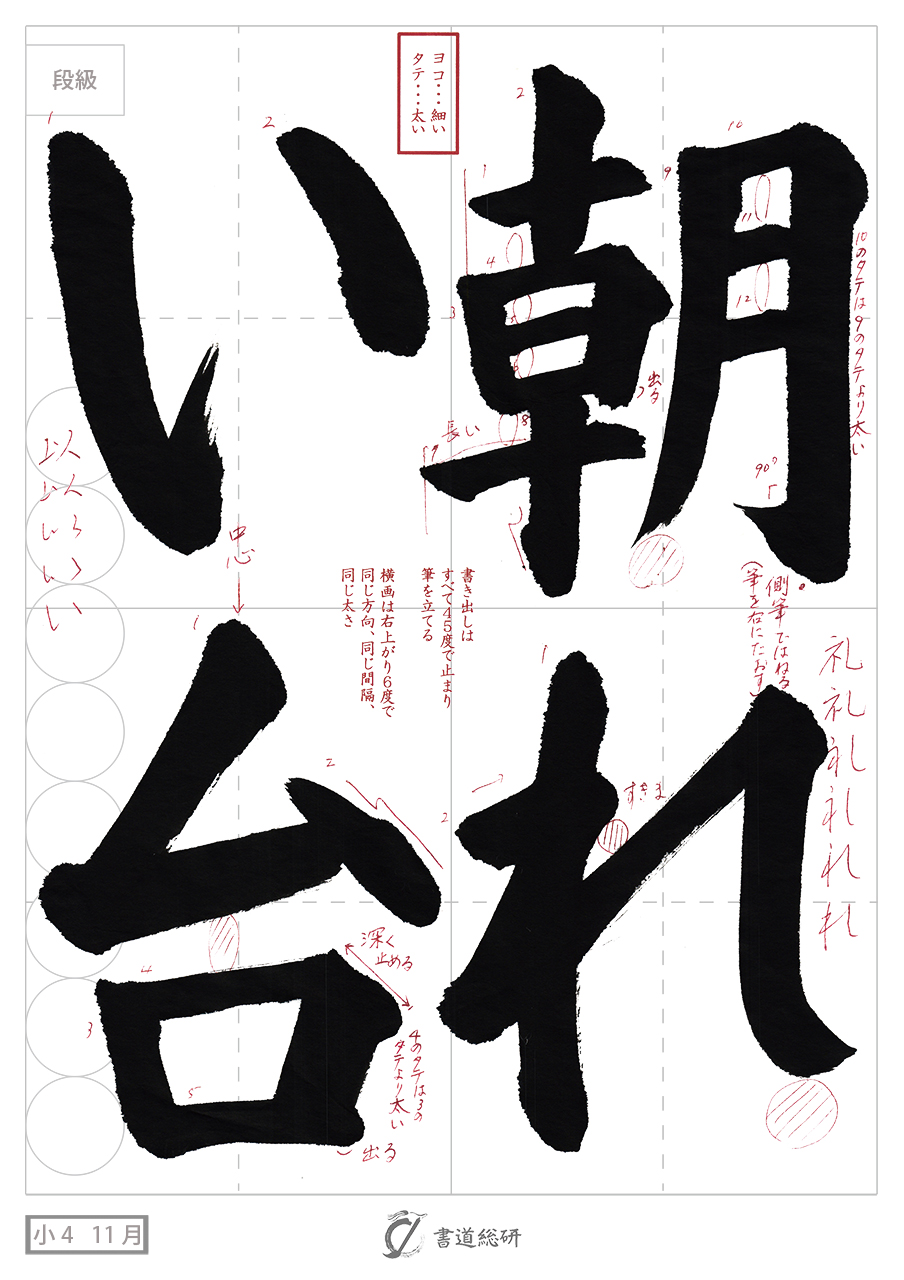 段級
ヨコ・・・細い
タテ・・・太い
朝れ
い台
1
2
3
4
5
6
7
8
9
10
11
12
10のタテは9のタテより太い
出る
長い
90°
側筆ではねる
(筆を右にたおす)
書き出しは
すべて45度で止まり
筆を立てる
横画は右上がり6度で
同じ方向、同じ間隔、
同じ太さ
1
2
すきま
礼
礼
礼
れ
れ
れ
1
2
以
以
い
い
い
中心
1
2
3
4
5
深く
止める
4のタテは3の
タテより太い
出る
小4 11月
書道総研